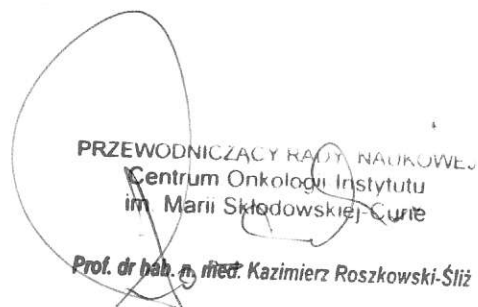 PRZEWODNICZĄCY RADY NAUKOWEJ
Centrum Onkologii Instytutu
im. Marii Skłodowskiej-Curie
Prof. dr hab. n. med. Kazimierz Roszkowski-Śliż